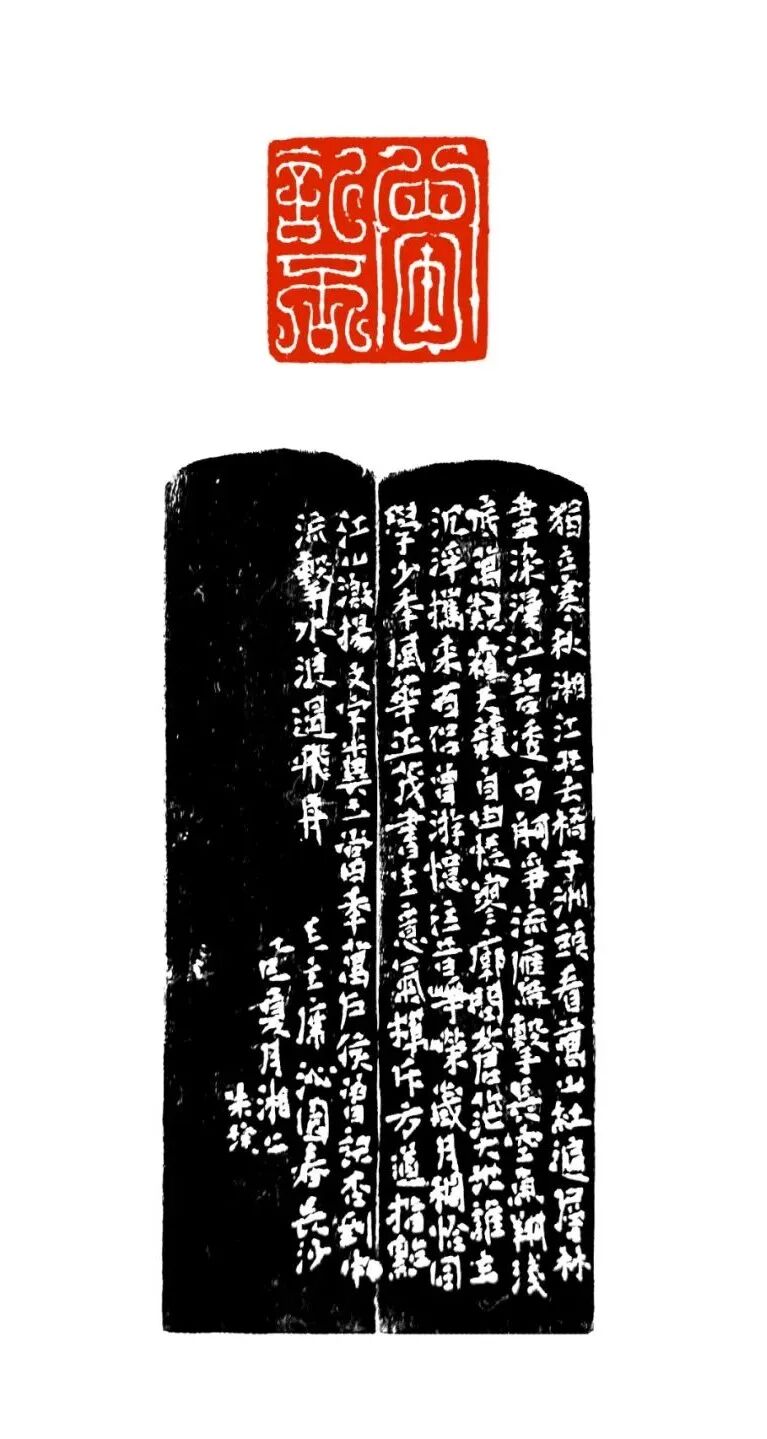 曾
記否
獨立寒秋湘江北去橘子洲頭看萬山紅遍層林
盡染漫江碧透百舸爭流鷹隼擊長空魚翔淺
底萬類霜天競自由悵寥廓問蒼茫大地誰主
沉浮攜來百侶曾游憶往昔崢嶸歲月稠恰同
學少年風華正茂書生意氣揮斥方遒指點
江山激揚文字糞土當年萬戶侯曾記否到中
流擊水浪遏飛舟
毛主席沁園春長沙
巳夏月湘
朱